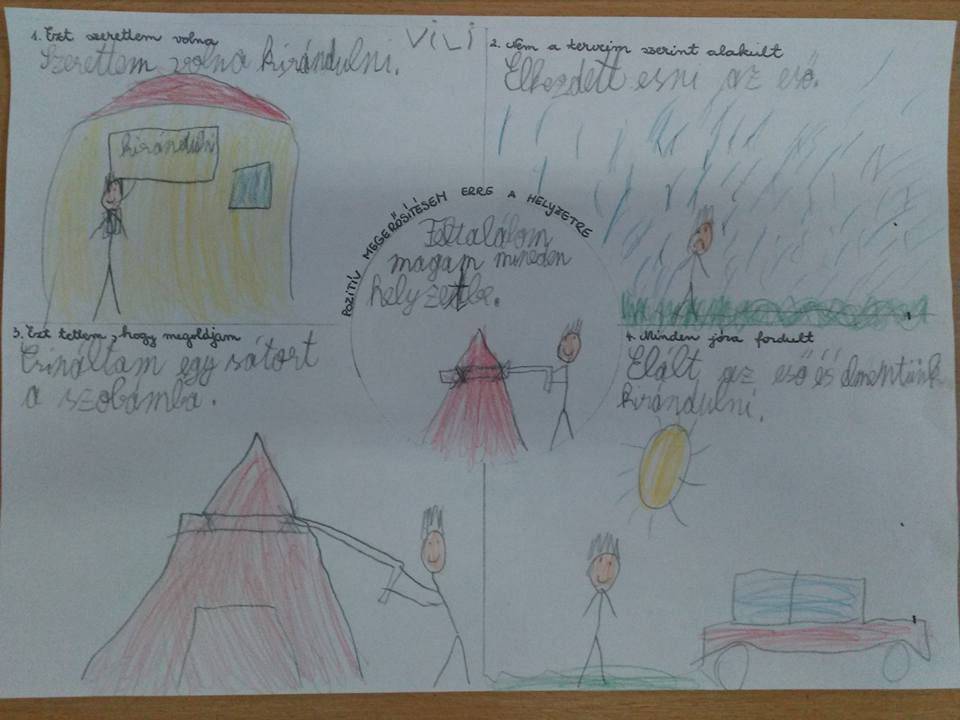 VILI
1. Ezt szerettem volna
Szerettem volna kirándulni.
kirándulni
2. Nem a terveim szerint alakult
Elkezdett esni az eső.
POZITÍV MEGERŐSÍTÉSEM ERRE A HELYZETRE
Feltalálom
magam minden
helyzetbe.
3. Ezt tettem, hogy megoldjam
Csináltam egy sátort
a szobámba.
4. Minden jóra fordult
Elált az eső és elmentünk
kirándulni.